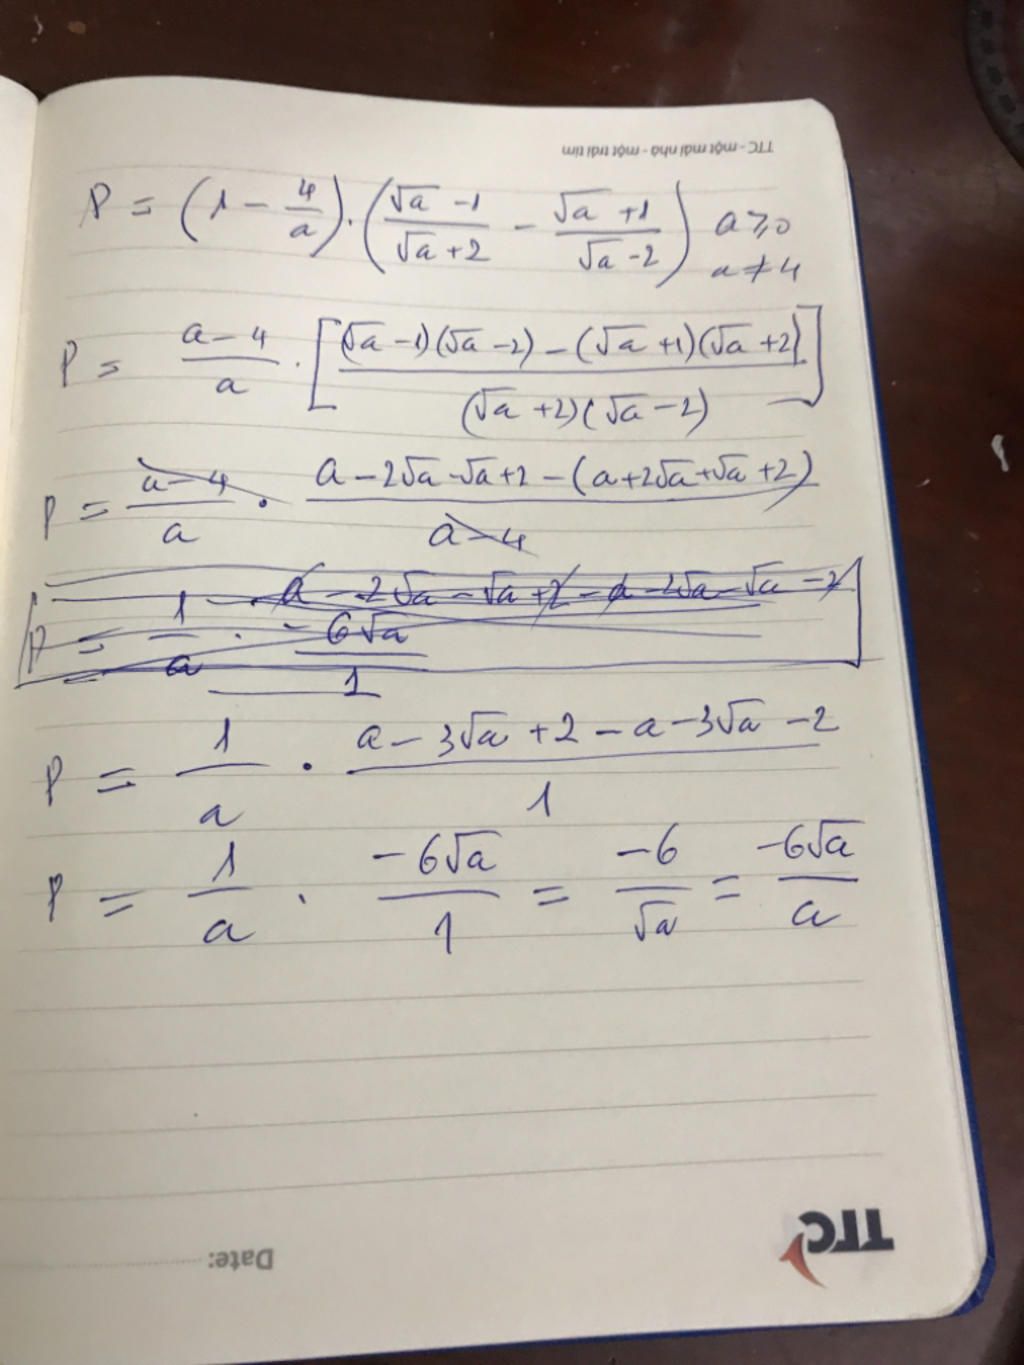 TTC - một mái nhà - một trái tim
P = (1 - 4/a) . ((√a - 1)/(√a + 2) - (√a + 1)/(√a - 2)) a ⩾ 0
a ≠ 4
P = (a - 4)/a . [((√a - 1)(√a - 2) - (√a + 1)(√a + 2))/((√a + 2)(√a - 2))]
P = (a - 4)/a . (a - 2√a - √a + 2 - (a + 2√a + √a + 2))/(a - 4)
a - 2√a - √a + 2 - a - 2√a - √a - 2
P = 1/a . (-6√a)/1
P = 1/a . (a - 3√a + 2 - a - 3√a - 2)/1
P = 1/a . (-6√a)/1 = -6/√a = -6√a/a
TTC
Date: